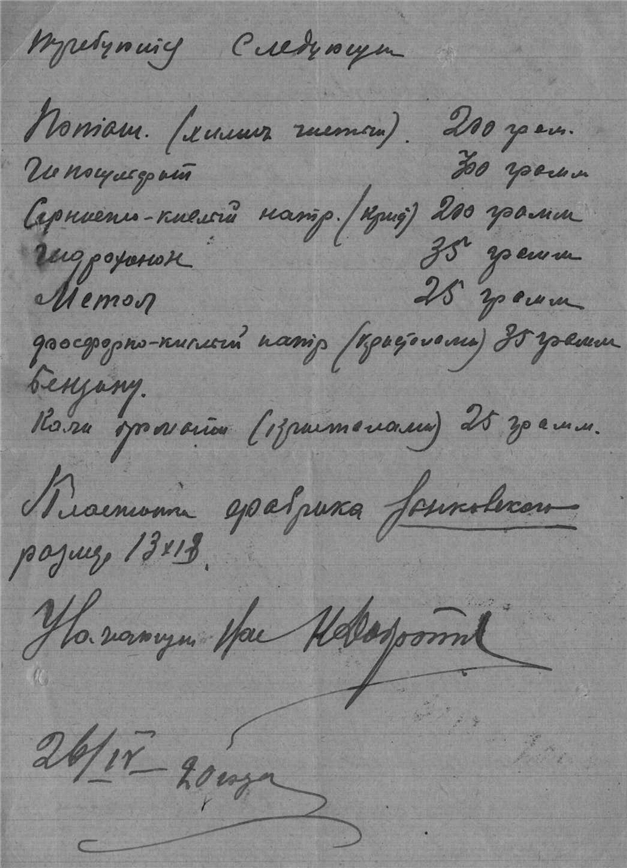 Требуются Следующее
Поташ. (химич чистый). 200 грам.
Гипосульфат 300 грамм
Сернисто-кислый натр. (крис) 200 грамм
Гидрохинон 35 грамм
Метол 25 грамм
фосфорно-кислый натр (кристалами) 35 грамм
Бензину.
Кали (кристалами) 25 грамм.
Пластинки фабрика Занковского
размер 13х18.
Уважающий Вас
26/IV 20 года